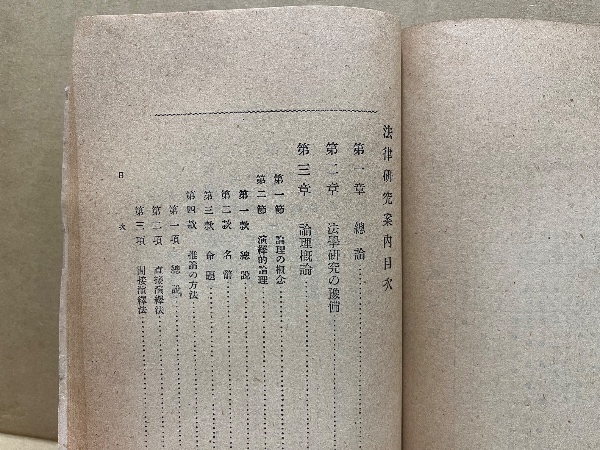 法律研究案內目次
第一章 總論
第二章 法學研究の豫備
第三章 論理槪論
第一節 論理の槪念
第二節 演繹的論理
第一款 總說
第二款 名辭
第三款 命題
第四款 推論の方法
第一項 總說
第二項 直接演繹法
第三項 間接演繹法
目次